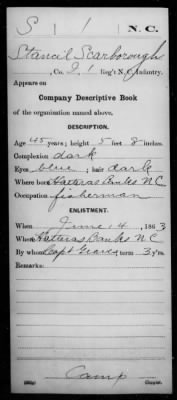 S 1 N.C.
Stancil Scarborough
, Co. I, 1 Reg't N.C. Infantry.
Appears on
Company Descriptive Book
of the organization named above.
DESCRIPTION.
Age 45 years; height 5 feet 8 inches.
Complexion dark
Eyes blue; hair dark
Where born Hatteras Banks NC
Occupation fisherman
ENLISTMENT.
When June 14, 1863
Where Hatteras Banks NC
By whom Capt ; term 3 y'rs.
Remarks:
Camp
Copyist.